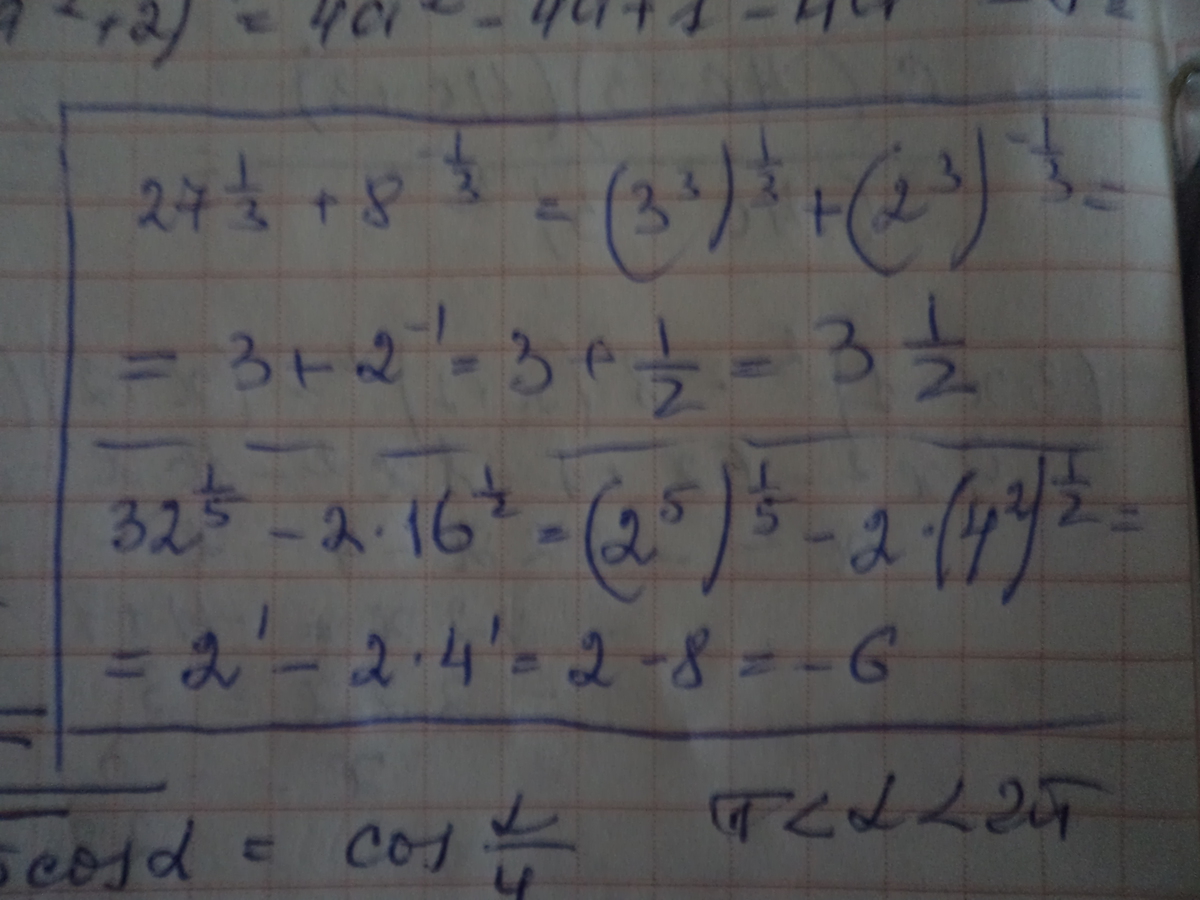 +2) = 4a² - 4a + 1 - 4a
27^{1/3} + 8^{-1/3} = (3³)^{1/3} + (2³)^{-1/3} =
= 3 + 2^{-1} = 3 + 1/2 = 3 1/2
32^{1/5} - 2·16^{1/2} = (2⁵)^{1/5} - 2·(4²)^{1/2} =
= 2¹ - 2·4¹ = 2 - 8 = -6
cos α = cos α/4 π < α < 2π